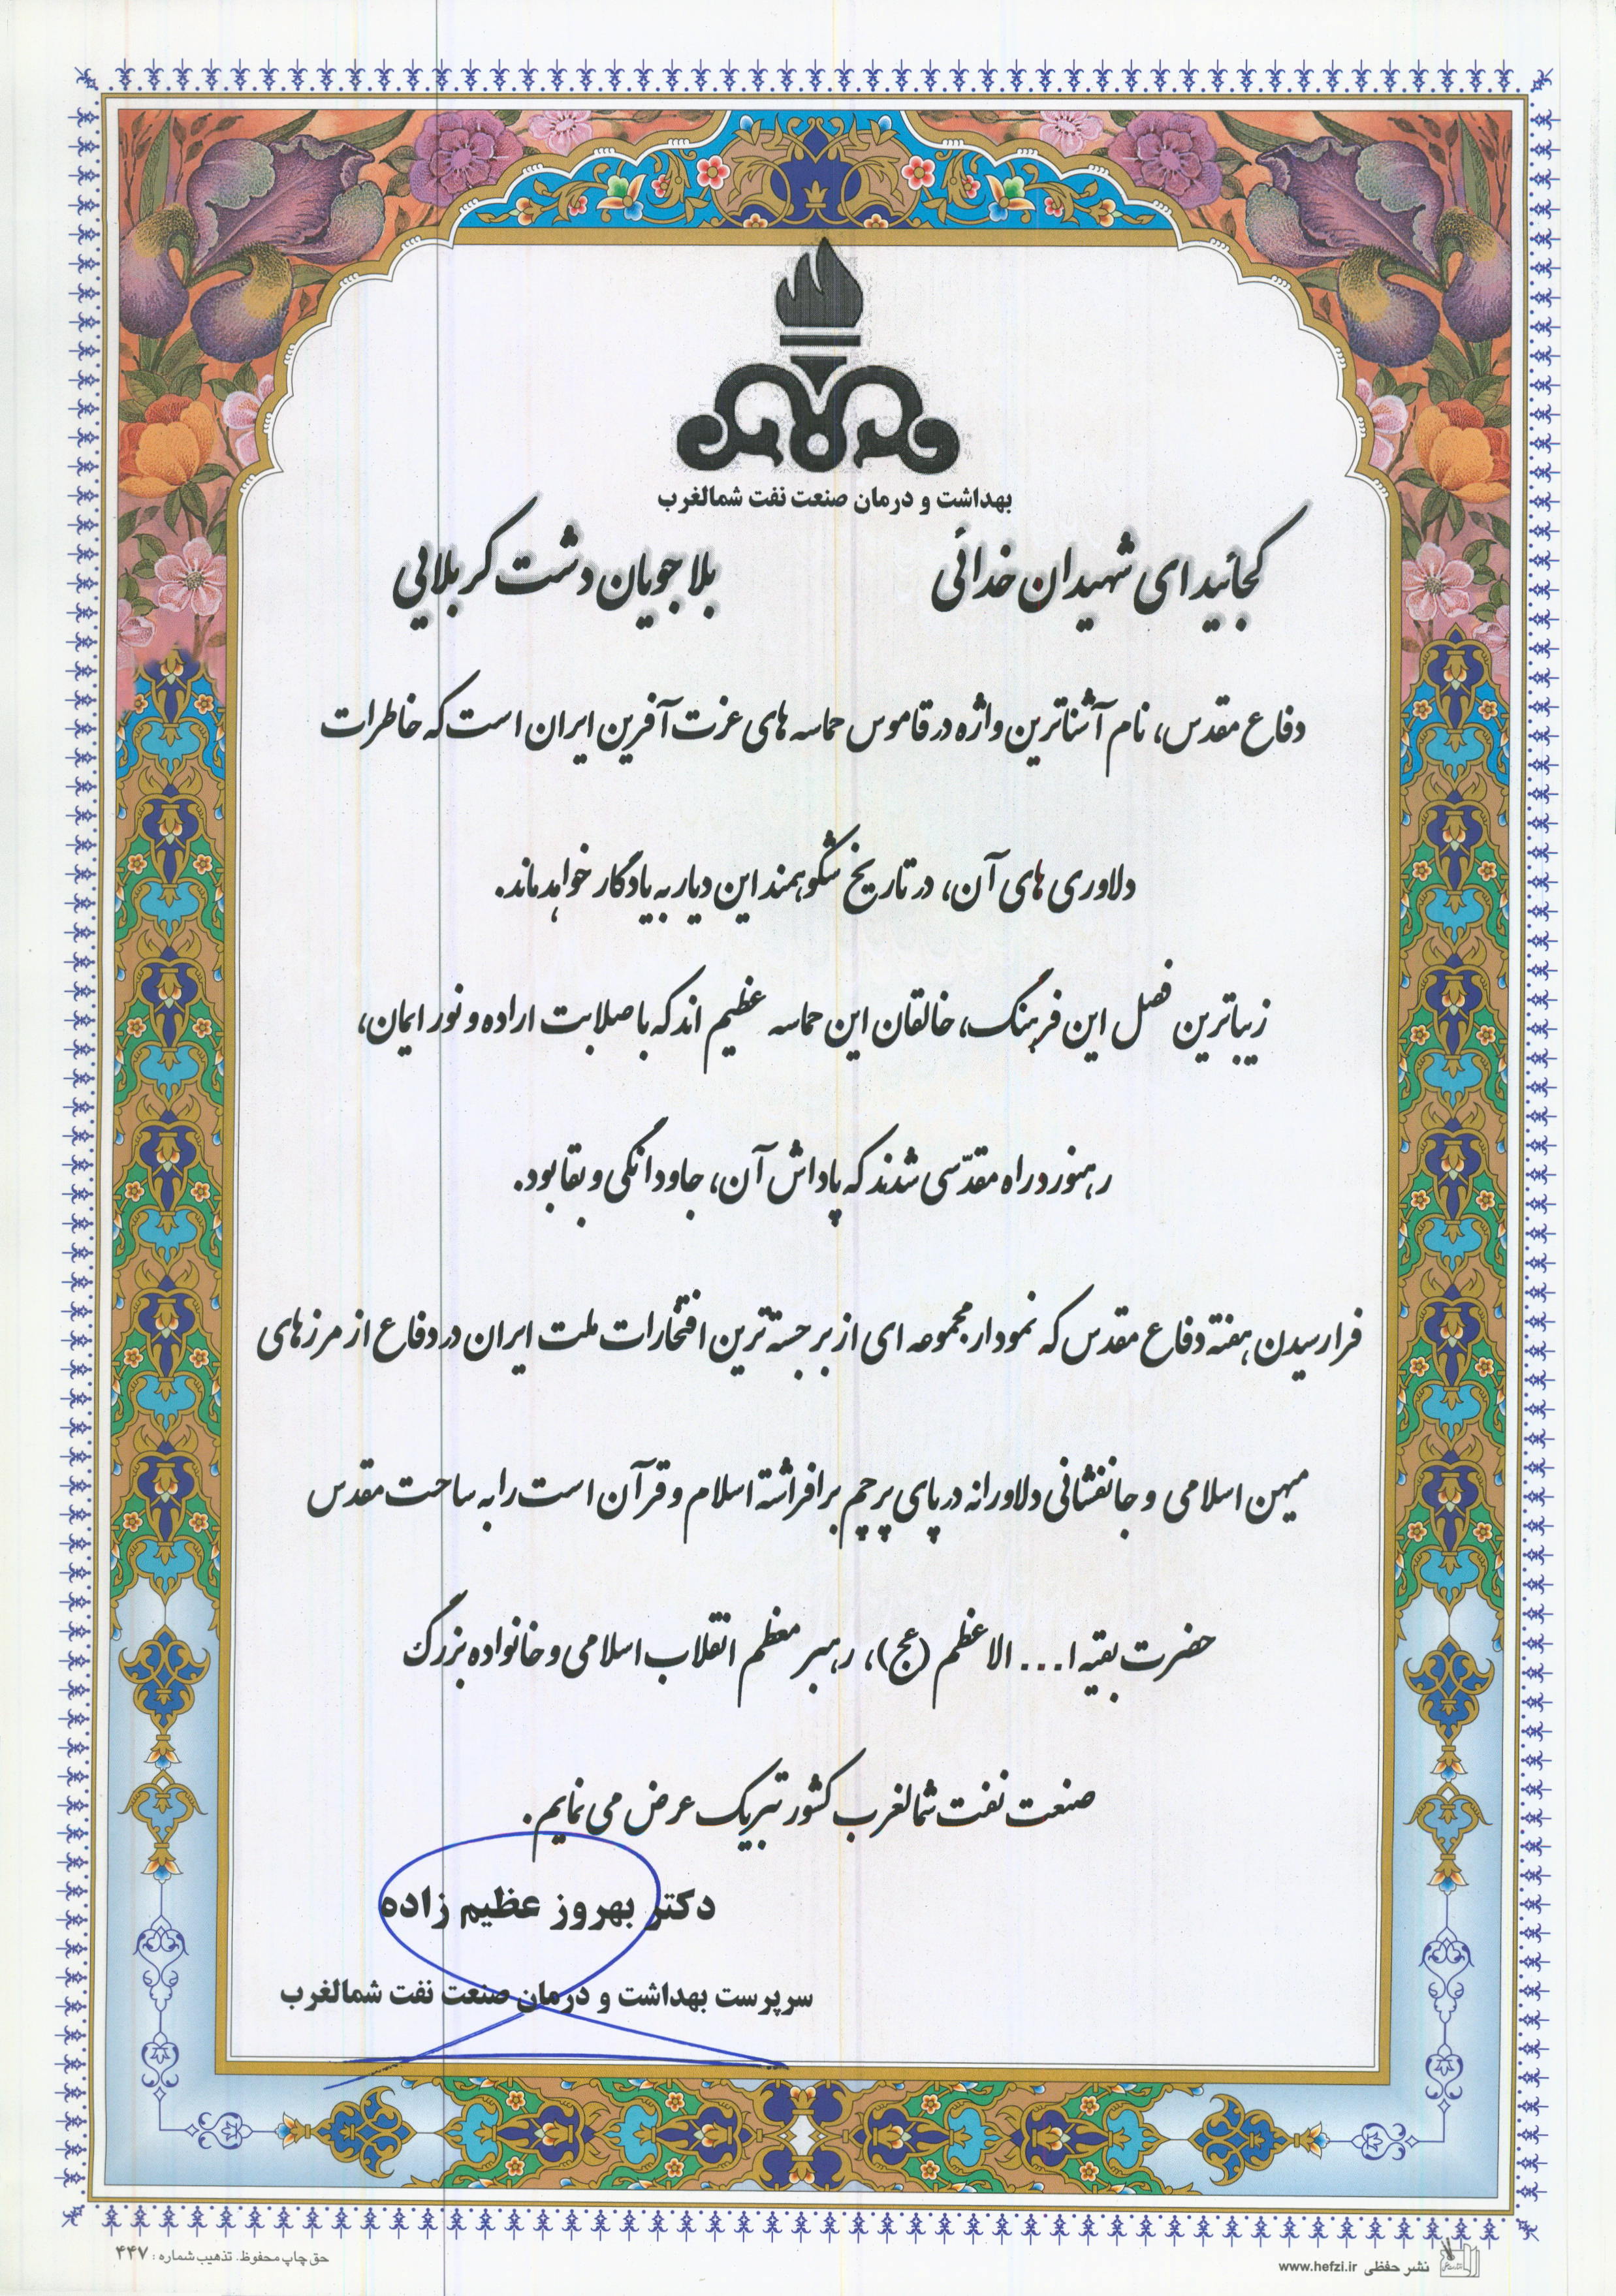 بهداشت و درمان صنعت نفت شمالغرب
کجائید ای شهیدان خدائی بلا جویان دشت کربلایی
دفاع مقدس، نام آشناترین واژه در قاموس حماسه های عزت آفرین ایران است که خاطرات
دلاوری های آن، در تاریخ شکوهمند این دیار به یادگار خواهد ماند.
زیباترین فصل این فرهنگ، خالقان این حماسه عظیم اند که با صلابت اراده و نور ایمان،
رهنورد راه مقدّسی شدند که پاداش آن، جاودانگی و بقا بود.
فرارسیدن هفته دفاع مقدس که نمودار مجموعه ای از برجسته ترین افتخارات ملت ایران در دفاع از مرزهای
میهن اسلامی و جانفشانی دلاورانه در پای پرچم برافراشته اسلام و قرآن است را به ساحت مقدس
حضرت بقیه ا... الاعظم (عج)، رهبر معظم انقلاب اسلامی و خانواده بزرگ
صنعت نفت شمالغرب کشور تبریک عرض می نمایم.
دکتر بهروز عظیم زاده
سرپرست بهداشت و درمان صنعت نفت شمالغرب
نشر حفظی www.hefzi.ir
حق چاپ محفوظ. تذهیب شماره: ۴۴۷